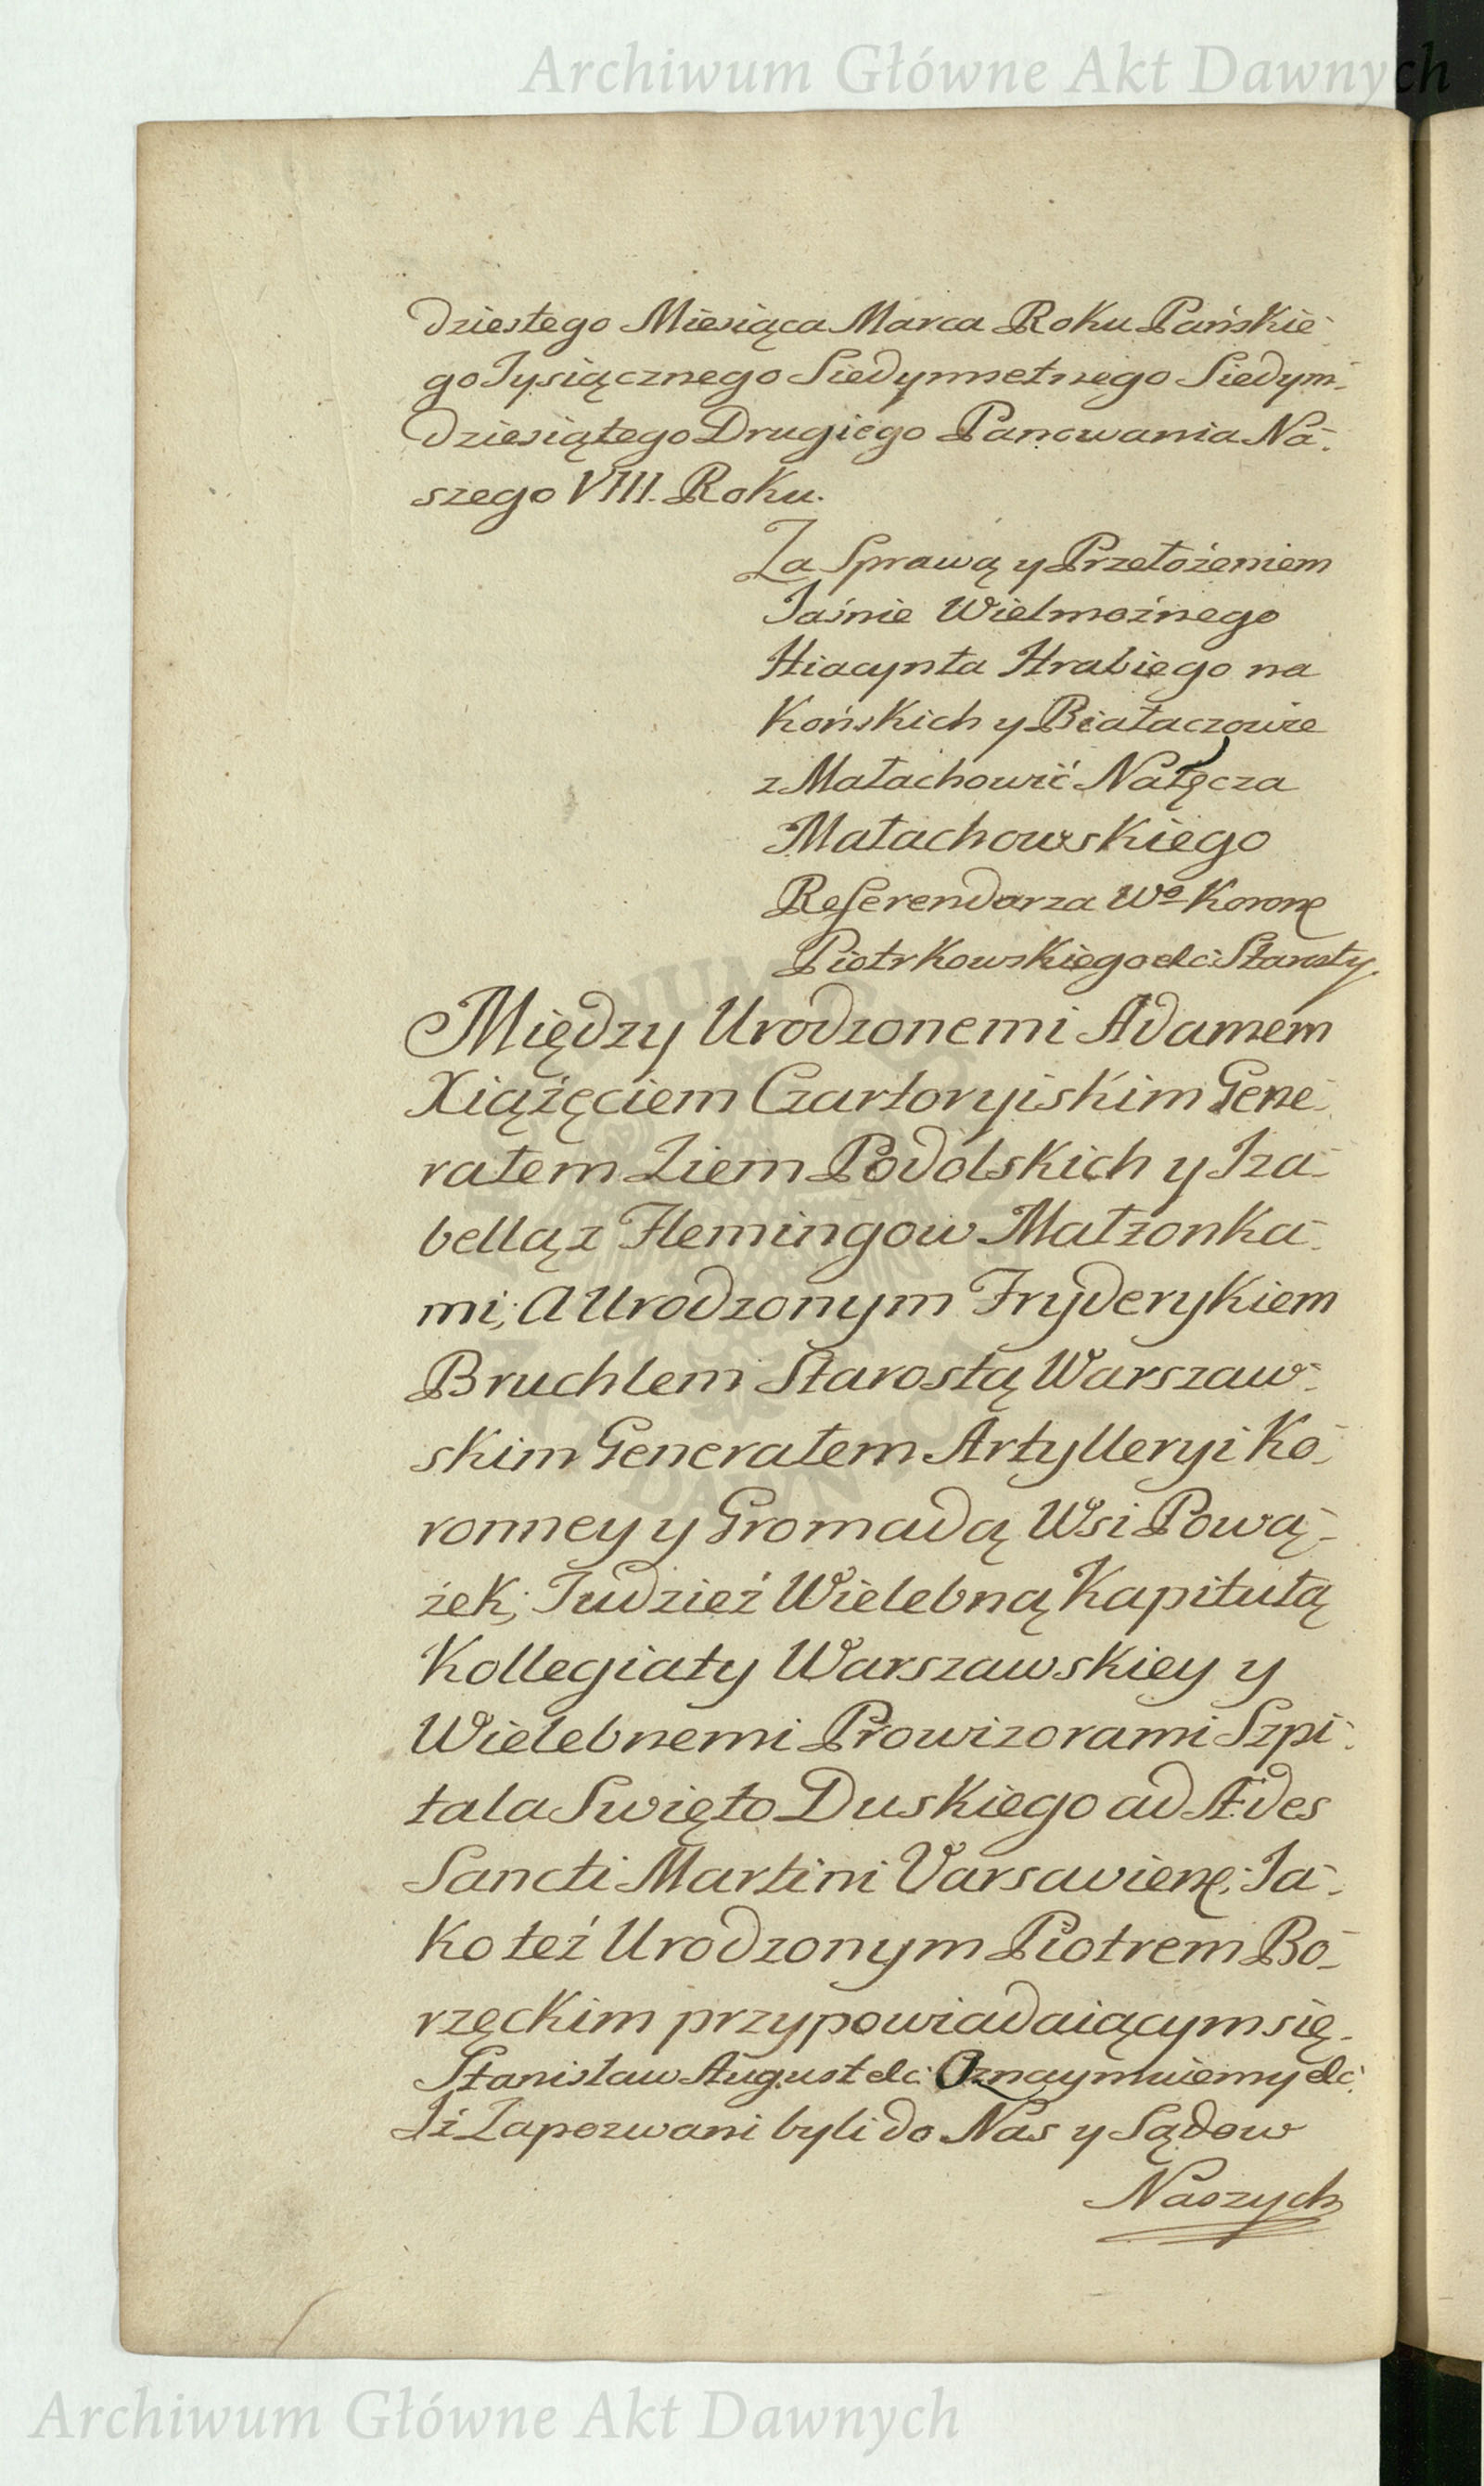 Archiwum Główne Akt Dawnych
dziestego Miesiąca Marca Roku Pańskie-
go Tysiącznego Siedymnetnego Siedym-
dziesiątego Drugiego Panowania Na-
szego VIII. Roku.
Za Sprawą y Przełożeniem
Jaśnie Wielmożnego
Hiacynta Hrabiego na
Końskich y Białaczowie
z Małachowić Nałęcza
Małachowskiego
Referendarza Wo Koronę
Piotrkowskiego etc: Starosty
Między Urodzonemi Adamem
Xiążęciem Czartoryiskim Gene-
rałem Ziem Podolskich y Iza-
bellą z Flemingow Małżonka-
mi; A Urodzonym Fryderykiem
Bruchlem Starostą Warszaw-
skim Generałem Artylleryi Ko-
ronney y Gromadą Wsi Pową-
żek; Tudzież Wielebną Kapitułą
Kollegiaty Warszawskiey y
Wielebnemi Prowizorami Szpi-
tala Swięto Duskiego ad Ædes
Sancti Martini Varsavienę; Ja-
ko też Urodzonym Piotrem Bo-
rzęckim przypowiadaiącym się.
Stanisław August etc: Oznaymuiemy etc:
Iż Zapozwani byli do Nas y Sądow
Naszych
Archiwum Główne Akt Dawnych